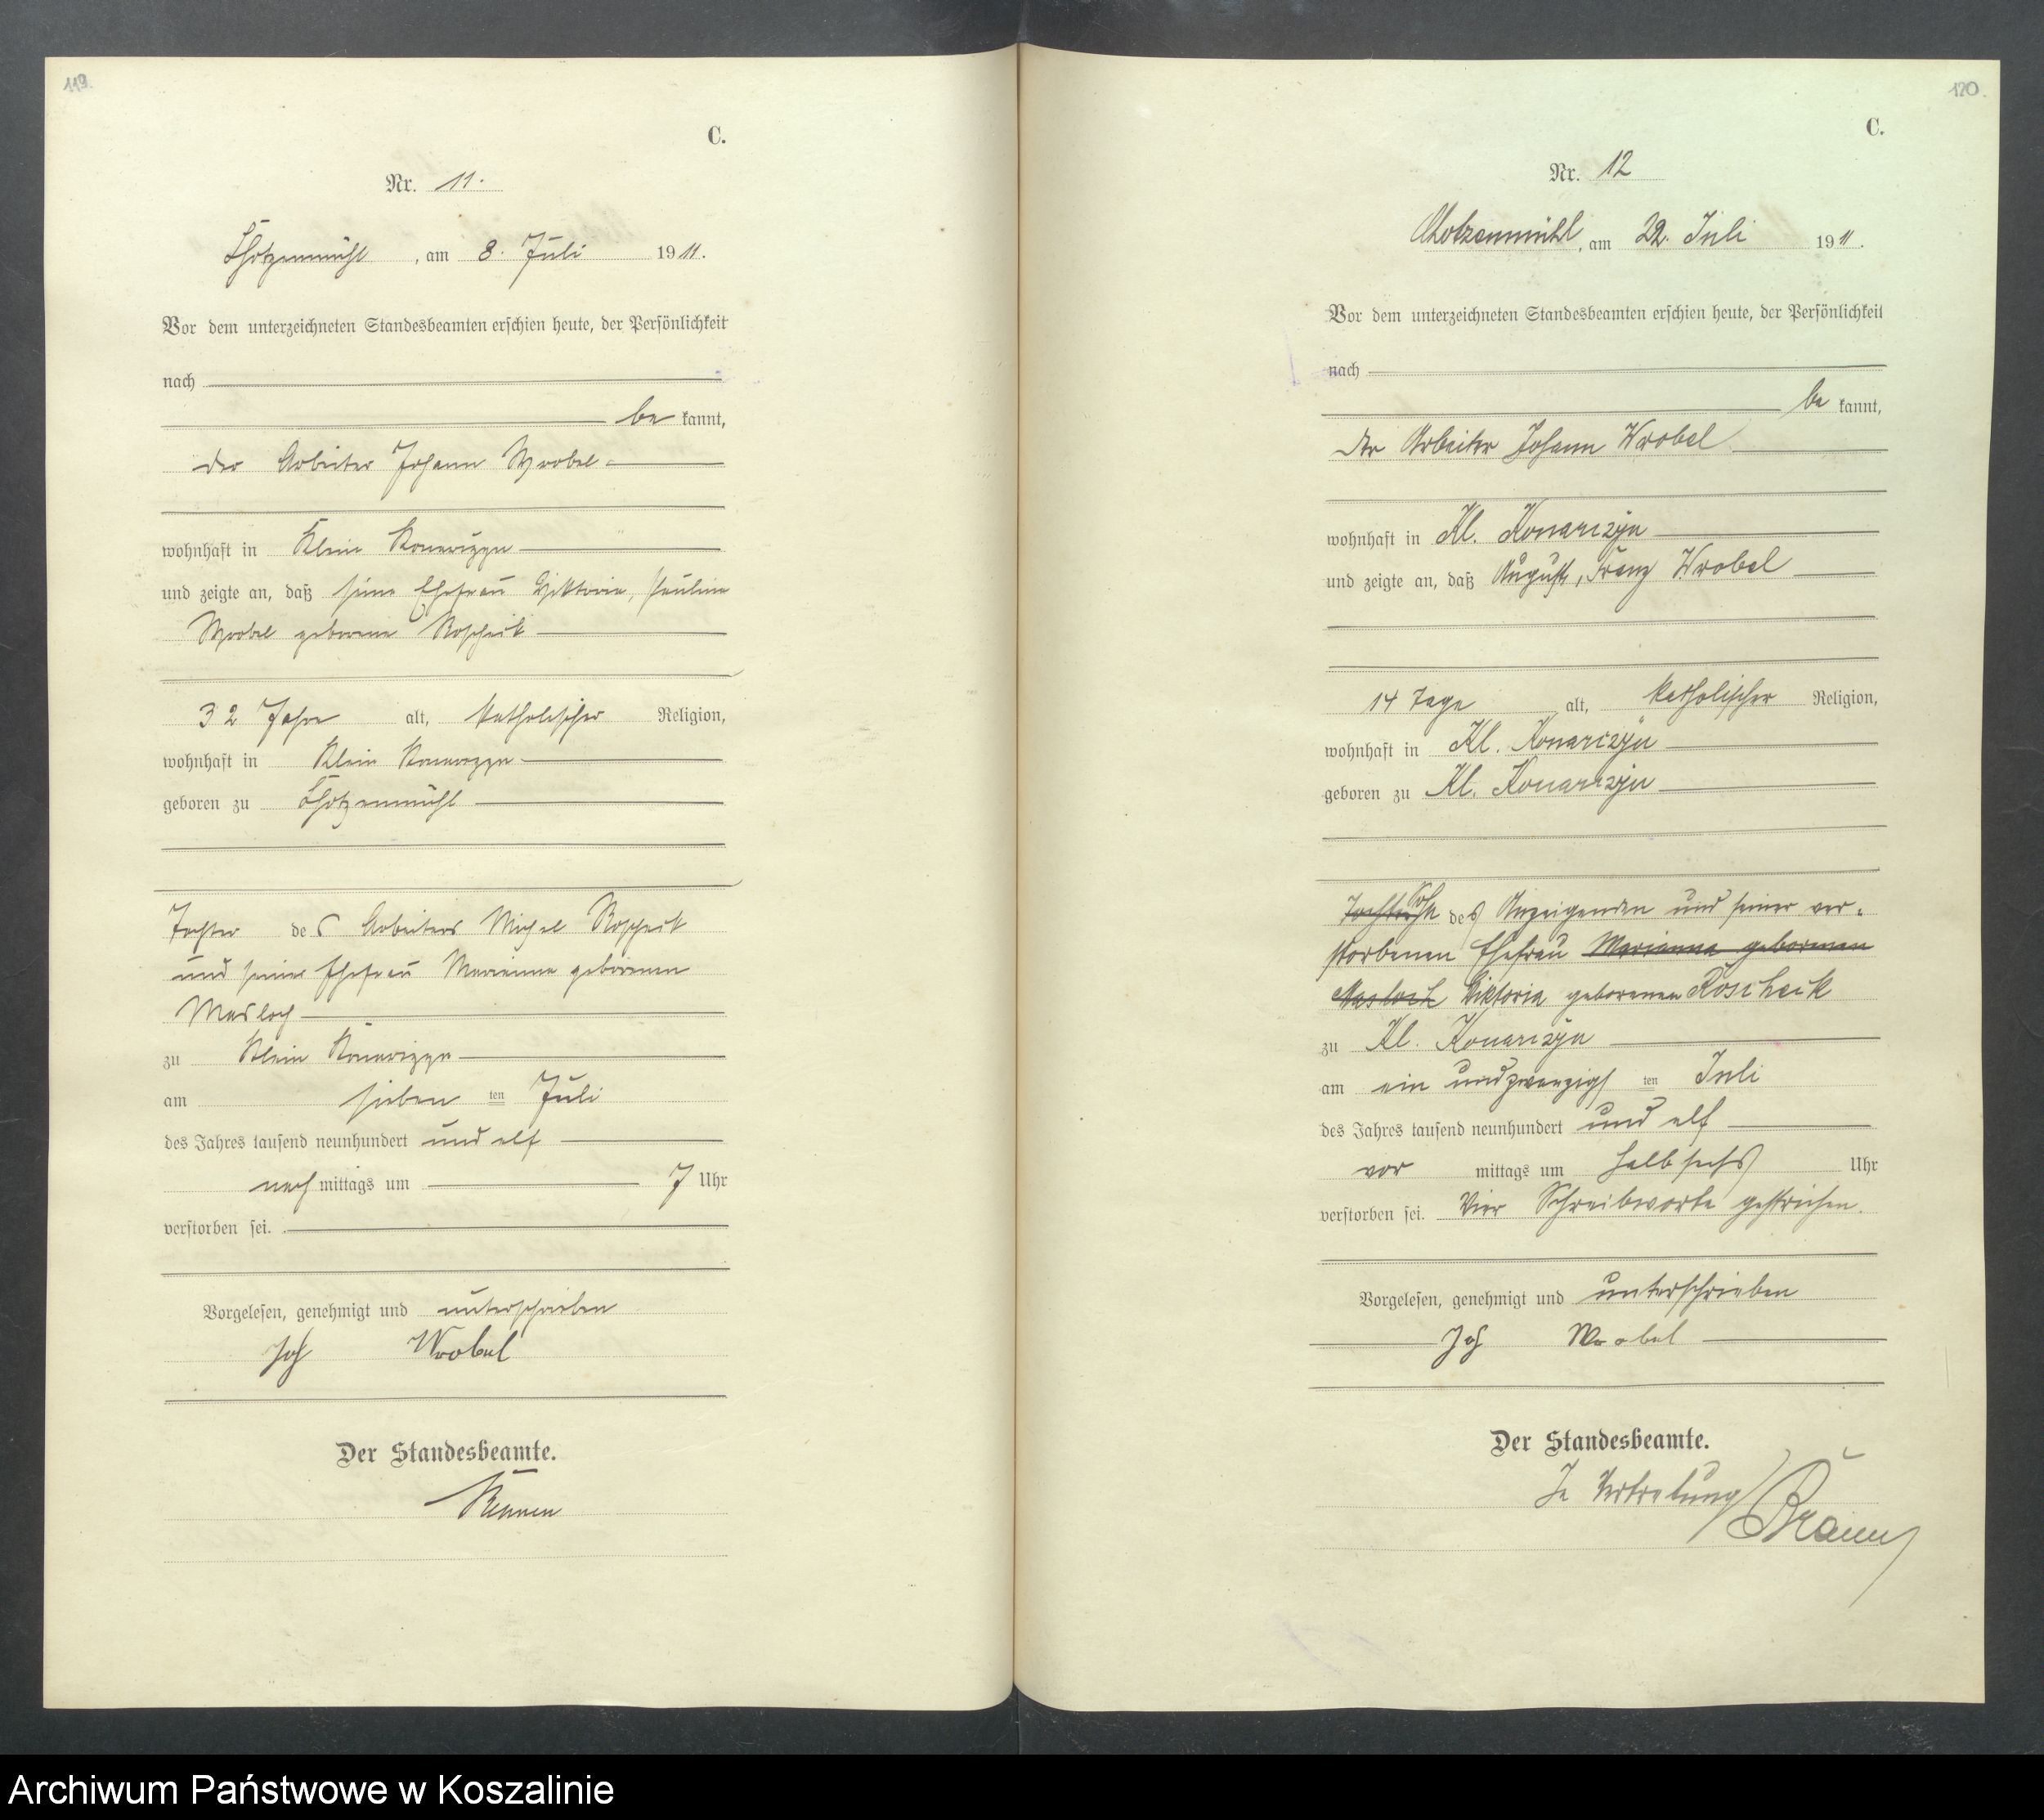 119.
C.
Nr. 11.
Chotzenmühl, am 8. Juli 1911.
Vor dem unterzeichneten Standesbeamten erschien heute, der Persönlichkeit
nach
be kannt,
der Arbeiter Johann Wrobel
wohnhaft in Klein Konarczyn
und zeigte an, daß seine Ehefrau Viktoria, Pauline
Wrobel geborene Roscheik
32 Jahre alt, katholischer Religion,
wohnhaft in Klein Konarczyn
geboren zu Chotzenmühl
Tochter des Arbeiters Michel Roscheik
und seiner Ehefrau Marianna geborenen
Masloch
zu Klein Konarczyn
am sieben ten Juli
des Jahres tausend neunhundert und elf
nach mittags um 7 Uhr
verstorben sei.
Vorgelesen, genehmigt und unterschrieben
Joh Wrobel
Der Standesbeamte.
120.
C.
Nr. 12
Chotzenmühl, am 22. Juli 1911.
Vor dem unterzeichneten Standesbeamten erschien heute, der Persönlichkeit
nach
be kannt,
der Arbeiter Johann Wrobel
wohnhaft in Kl. Konarczyn
und zeigte an, daß August, Franz Wrobel
14 Tage alt, katholischer Religion,
wohnhaft in Kl. Konarczyn
geboren zu Kl. Konarczyn
Tochter Sohn des Anzeigenden und seiner ver-
storbenen Ehefrau Marianna geborenen
Masloch Viktoria geborenen Roscheik
zu Kl. Konarczyn
am ein undzwanzigs ten Juli
des Jahres tausend neunhundert und elf
vor mittags um halb sechs Uhr
verstorben sei. Vier Schreibworte gestrichen.
Vorgelesen, genehmigt und unterschrieben
Joh Wrobel
Der Standesbeamte.
In Vertretung Braun
Archiwum Państwowe w Koszalinie